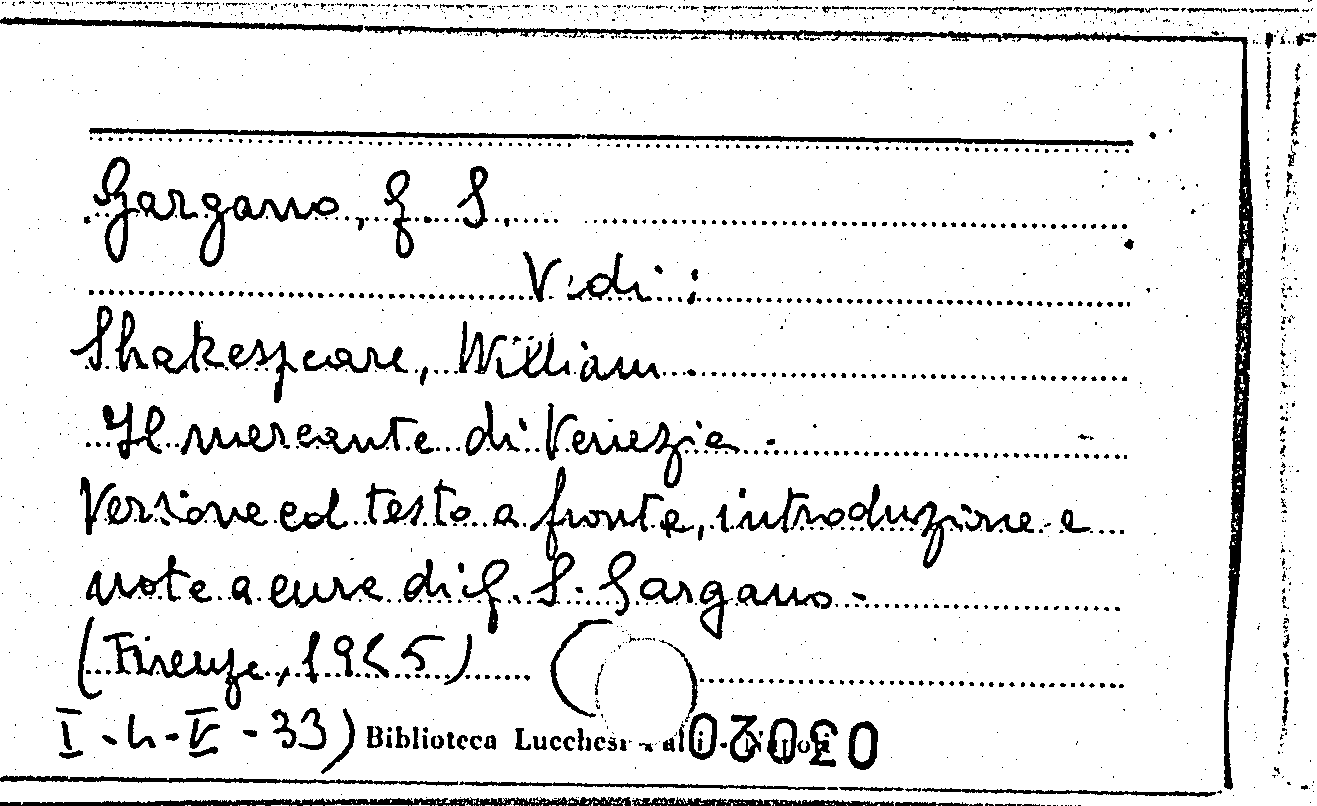 Gargano, G. S.
Vedi:
Shakespeare, William.
Il mercante di Venezia.
Versione col testo a fronte, introduzione e
note a cura di G. S. Gargano -
(Firenze,
I - 4 - V - 33) Biblioteca Lucchesi